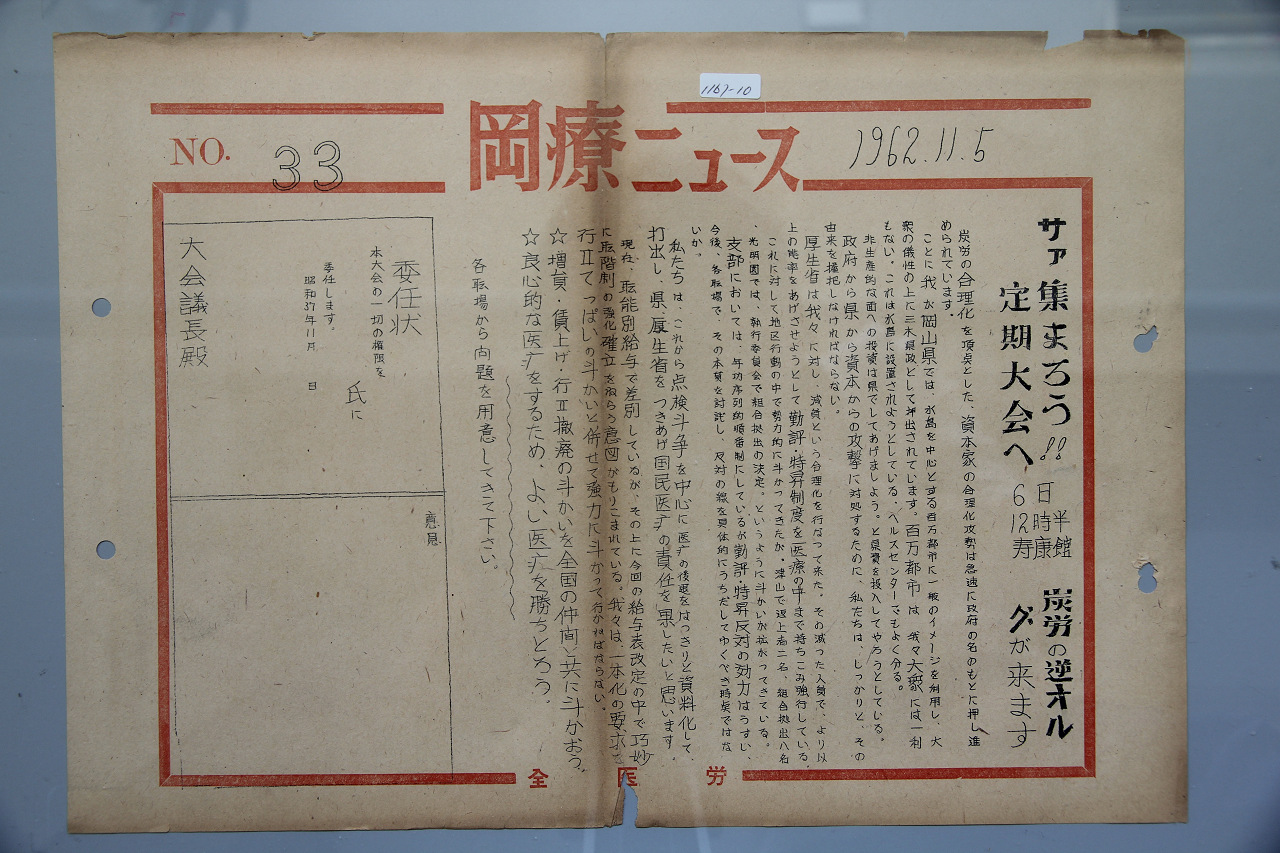 1167-10
岡療ニュース
NO. 33
1962.11.5
サァ集まろう!!
定期大会へ
6日
12時半
寿康館
炭労の逆オル
グが来ます
炭労の合理化を頂点とした、資本家の合理化攻勢は急速に政府の名のもとに押し進
められています。
ことに我が岡山県では、水島を中心とする百万都市に一般のイメージを利用し、大
衆の儀性の上に三木県政として押出されています。百万都市は我々大衆には一利
もない。これは水島に設置されようとしている、ヘルスセンターでもよく分る。
非生産的な面への投資は県でしてあげましよう。と県費を投入してやろうとしている。
政府から県から資本からの攻撃に対処するたのに、私たちは、しっかりと、その
由来を撮把しなければならない。
厚生省は我々に対し、減員という合理化を行なつて来た。その減った人員で、より以
上の能率をあげさせようとして勤評・特昇制度を医療の中まで持ちこみ強行している。
これに対して地区行動の中で勢力的に斗かつてきたが、津山で返上者二名、組合拠出八名
、光明園では、執行委員会で組合拠出の決定。というように斗かいが拡がつてきている。
支部においては、年功序列的順番制にしているが勤評・特昇反対の効力はうすい、
今後、各転場で、その本質を討議し、反対の線を具体的にうちだしてゆくべき時点ではな
いか。
私たちは、これから点検斗争を中心に医疒の後退をはっきりと資料化して、
打出し、県、厚生省をつきあげ国民医疒の責任を果したいと思います。
現在、転能別給与で差別しているが、その上に今回の給与表改定の中で巧妙
に転階制の強化確立をねらう意図がもりこまれている。我々は、一本化の要求を
行Ⅱてっぱいの斗かいと併せて強力に斗かって行かねばならない。
☆増員・賃上げ・行Ⅱ撤廃の斗かいを全国の仲間と共に斗かおう。
☆良心的な医疒をするため、よい医疒を勝ちとろう。
各転場から問題を用意してきて下さい。
委任状
氏に
本大会の一切の権限を
委任します。
昭和37年11月 日
大会議長殿
意見
全医労